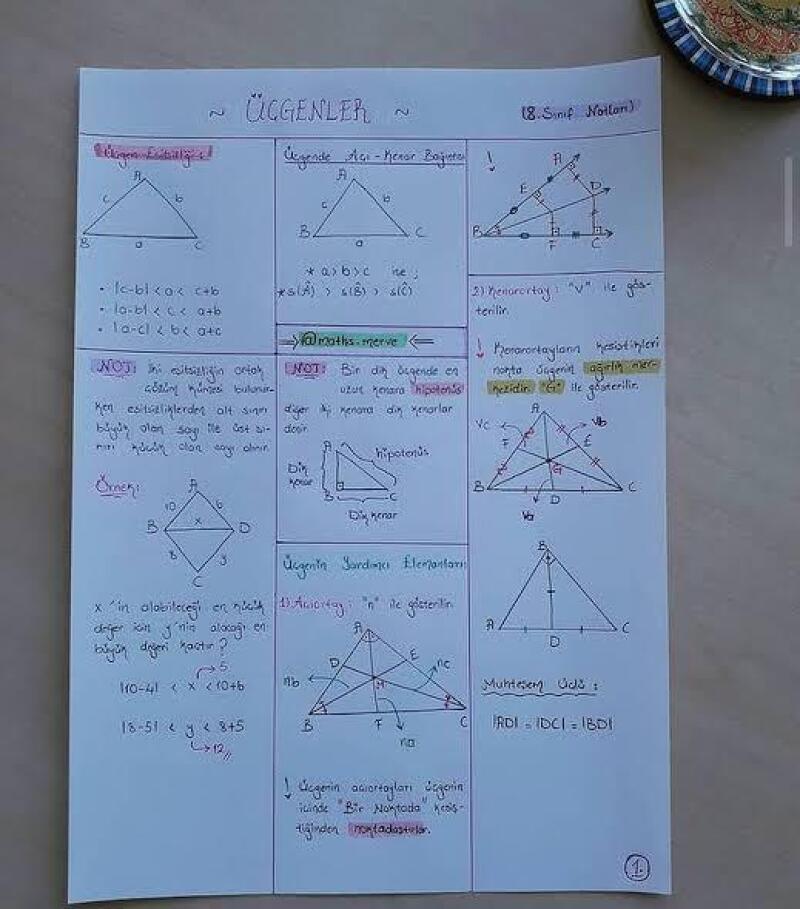 ~ ÜÇGENLER ~
(8. Sınıf Notları)
Üçgen Eşitsizliği:
A
c
b
B
a
C
• |c-b| < a < c+b
• |a-b| < c < a+b
• |a-c| < b < a+c
NOT: İki eşitsizliğin ortak
çözüm kümesi bulunur-
ken eşitsizliklerden alt sınırı
büyük olan sayı ile üst sı-
nırı küçük olan sayı alınır.
Örnek:
A
10
6
B
x
D
8
y
C
x'in alabileceği en küçük
değer için y'nin alacağı en
büyük değeri kaçtır?
5
|10-6| < x < 10+6
|8-5| < y < 8+5
12
Üçgende Açı - Kenar Bağıntısı
A
c
b
B
a
C
* a > b > c ise ;
* s(Â) > s(B̂) > s(Ĉ)
⇒ @maths.merve ⇐
NOT: Bir dik üçgende en
uzun kenara hipotenüs
diğer iki kenara dik kenarlar
denir.
A
hipotenüs
Dik
kenar
B
C
Dik kenar
Üçgenin Yardımcı Elemanları
1) Açıortay: "n" ile gösterilir.
A
D
E
nb
nc
M
B
F
C
na
! Üçgenin açıortayları üçgenin
içinde "Bir Noktada" kesiş-
tiğinden noktadaştırlar.
!
A
E
D
B
F
C
2) Kenarortay: "V" ile gös-
terilir.
! Kenarortayların kesiştikleri
nokta üçgenin ağırlık mer-
kezidir. "G" ile gösterilir.
A
Vc
Vb
F
E
G
B
D
C
Va
B
A
D
C
Muhteşem Üçlü:
|AD| = |DC| = |BD|
1.